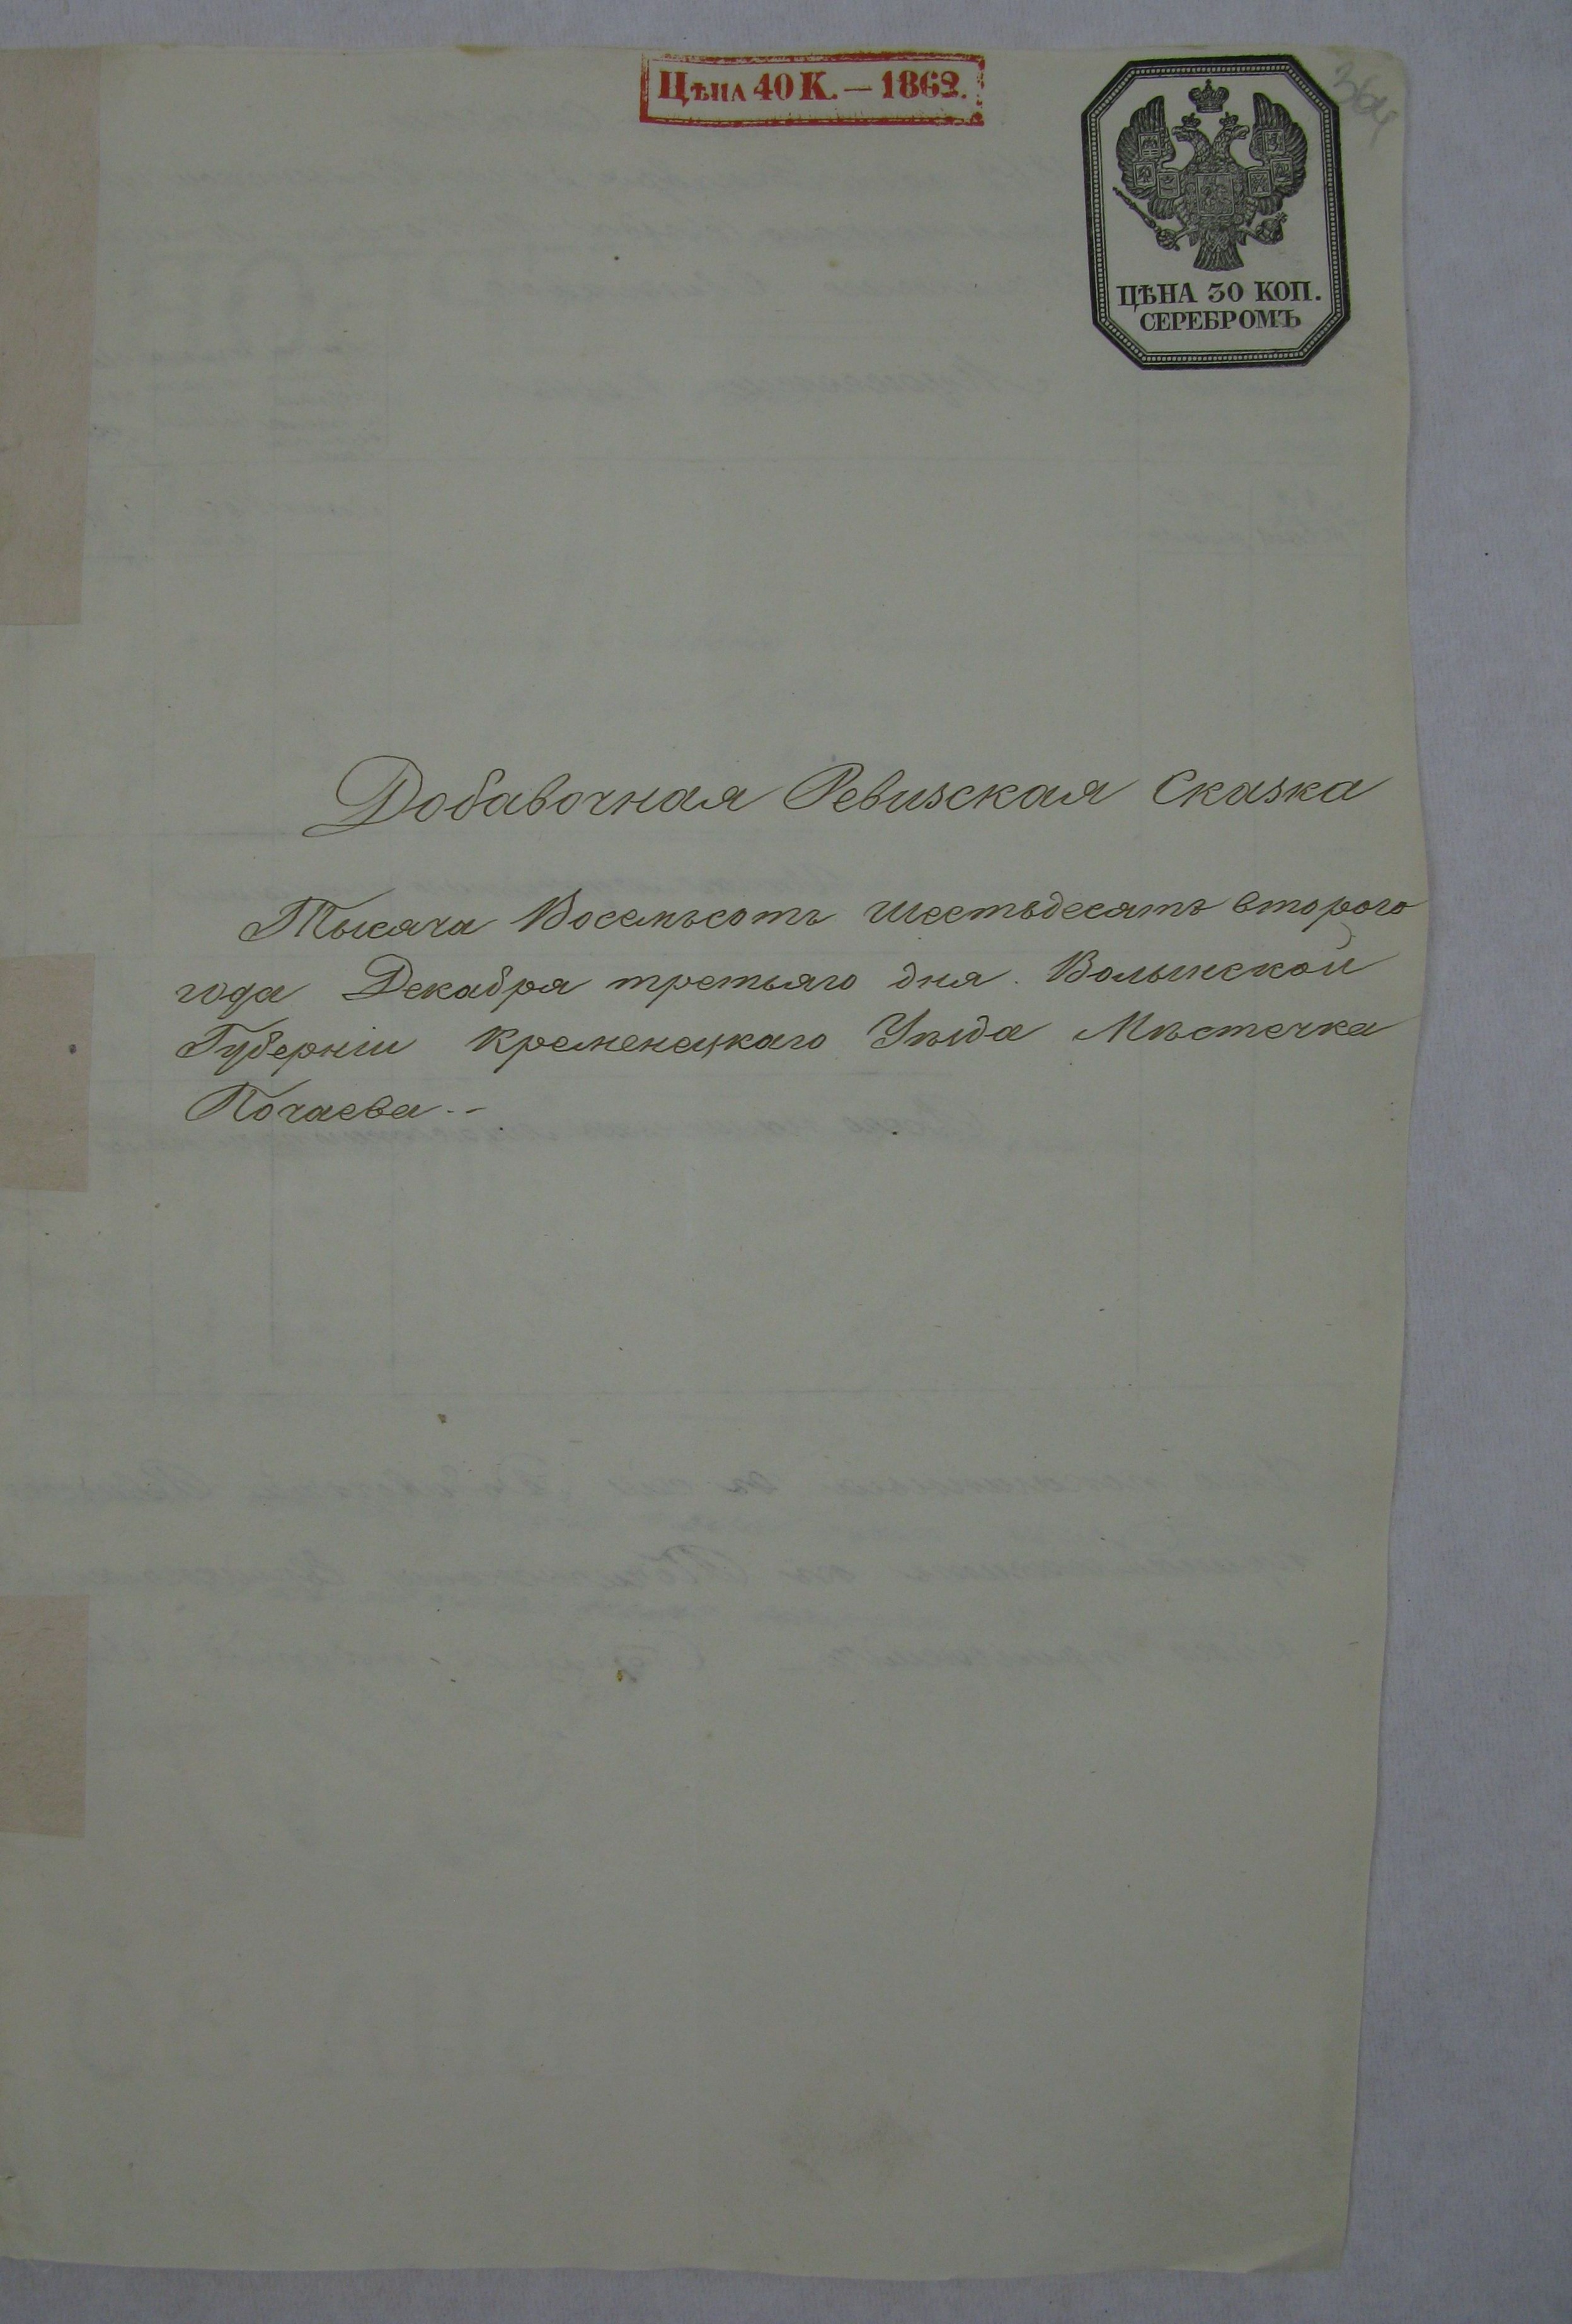 Цѣна 40 К. — 1862.
364
ЦѢНА 30 КОП.
СЕРЕБРОМЪ
Добавочная Ревизская Сказка
Тысяча Восемьсотъ шестьдесятъ второго
года Декабря третьяго дня. Волынской
Губерніи Кременецкаго Уѣзда Мѣстечка
Почаева.-